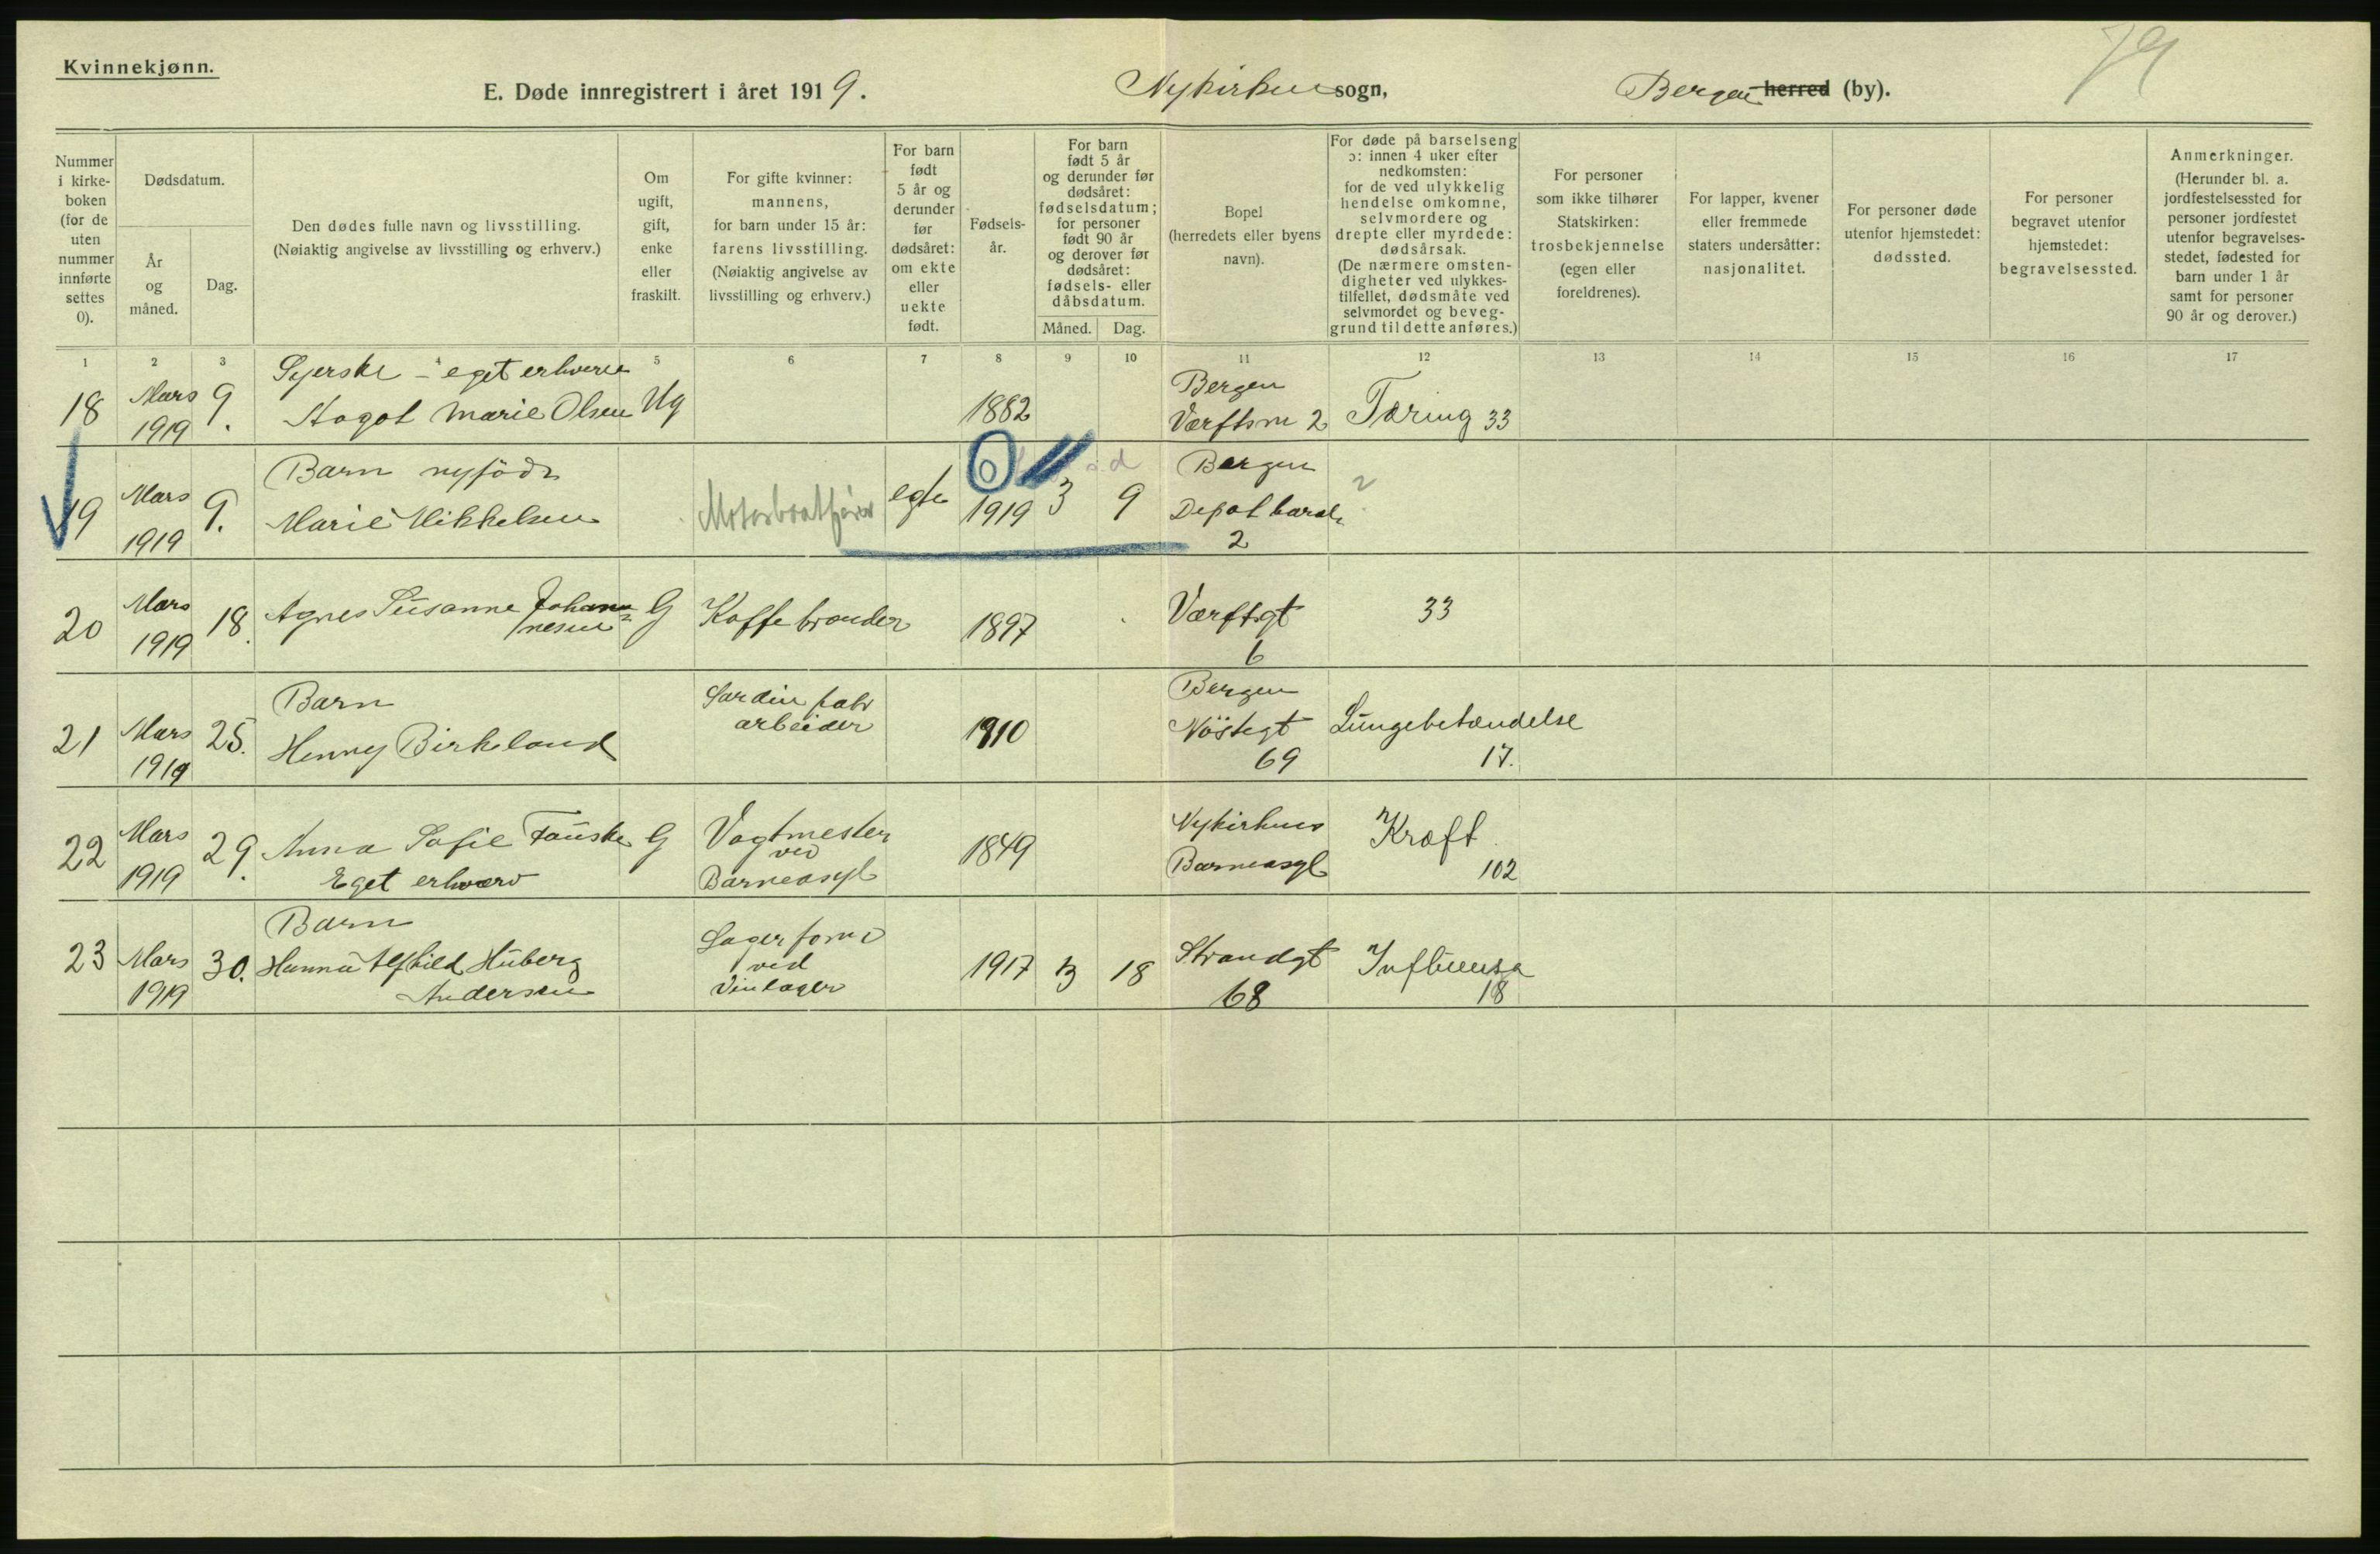 Kvinnekjønn.
79
E. Døde innregistrert i året 1919. Nykirkens sogn, Bergen herred (by).
Nummer i kirke-boken (for de uten nummer innførte settes 0).
Dødsdatum.
År og måned.
Dag.
Den dødes fulle navn og livsstilling.
(Nøiaktig angivelse av livsstilling og erhverv.)
Om ugift, gift, enke eller fraskilt.
For gifte kvinner: mannens, for barn under 15 år: farens livsstilling. (Nøiaktig angivelse av livsstilling og erhverv.)
For barn født 5 år og derunder før dødsåret: om ekte eller uekte født.
Fødsels-år.
For barn født 5 år og derunder før dødsåret: fødselsdatum; for personer født 90 år og derover før dødsåret: fødsels- eller dåbsdatum.
Måned.
Dag.
Bopel (herredets eller byens navn).
For døde på barselseng ɔ: innen 4 uker efter nedkomsten: for de ved ulykkelig hendelse omkomne, selvmordere og drepte eller myrdede: dødsårsak. (De nærmere omsten-digheter ved ulykkes-tilfellet, dødsmåte ved selvmordet og beveg-grund til dette anføres.)
For personer som ikke tilhører Statskirken: trosbekjennelse (egen eller foreldrenes).
For lapper, kvener eller fremmede staters undersåtter: nasjonalitet.
For personer døde utenfor hjemstedet: dødssted.
For personer begravet utenfor hjemstedet: begravelsessted.
Anmerkninger. (Herunder bl. a. jordfestelsessted for personer jordfestet utenfor begravelses-stedet, fødested for barn under 1 år samt for personer 90 år og derover.)
1 2 3 4 5 6 7 8 9 10 11 12 13 14 15 16 17
Syerske - eget erhverv
18 Mars 1919 9. Aagot Marie Olsen Ug 1882 Bergen Værftsm 2 Tæring 33
Barn nyfödt
19 Mars 1919 9. Marie Mikkelsen Motorbåtfører egte 0 1919 3 9 Bergen Depot barak 2
20 Mars 1919 18. Agnes Susanne Johannesen G Kaffebrænder 1897 Værftsgt 6 33
Barn
21 Mars 1919 25. Henny Birkeland Sardin fabr arbeider 1910 Bergen Nöstegt 69 Lungebetændelse 17.
22 Mars 1919 29. Anna Sofie Fauske G Vagtmester ved Barneasyl 1849 Nykirkens Barneasyl Kræft 102
Eget erhværv
Barn
23 Mars 1919 30. Hanna Alfhild Huberg Andersen Lagerform ved Vinlager 1917 3 18 Strandgt 68 Influensa 18